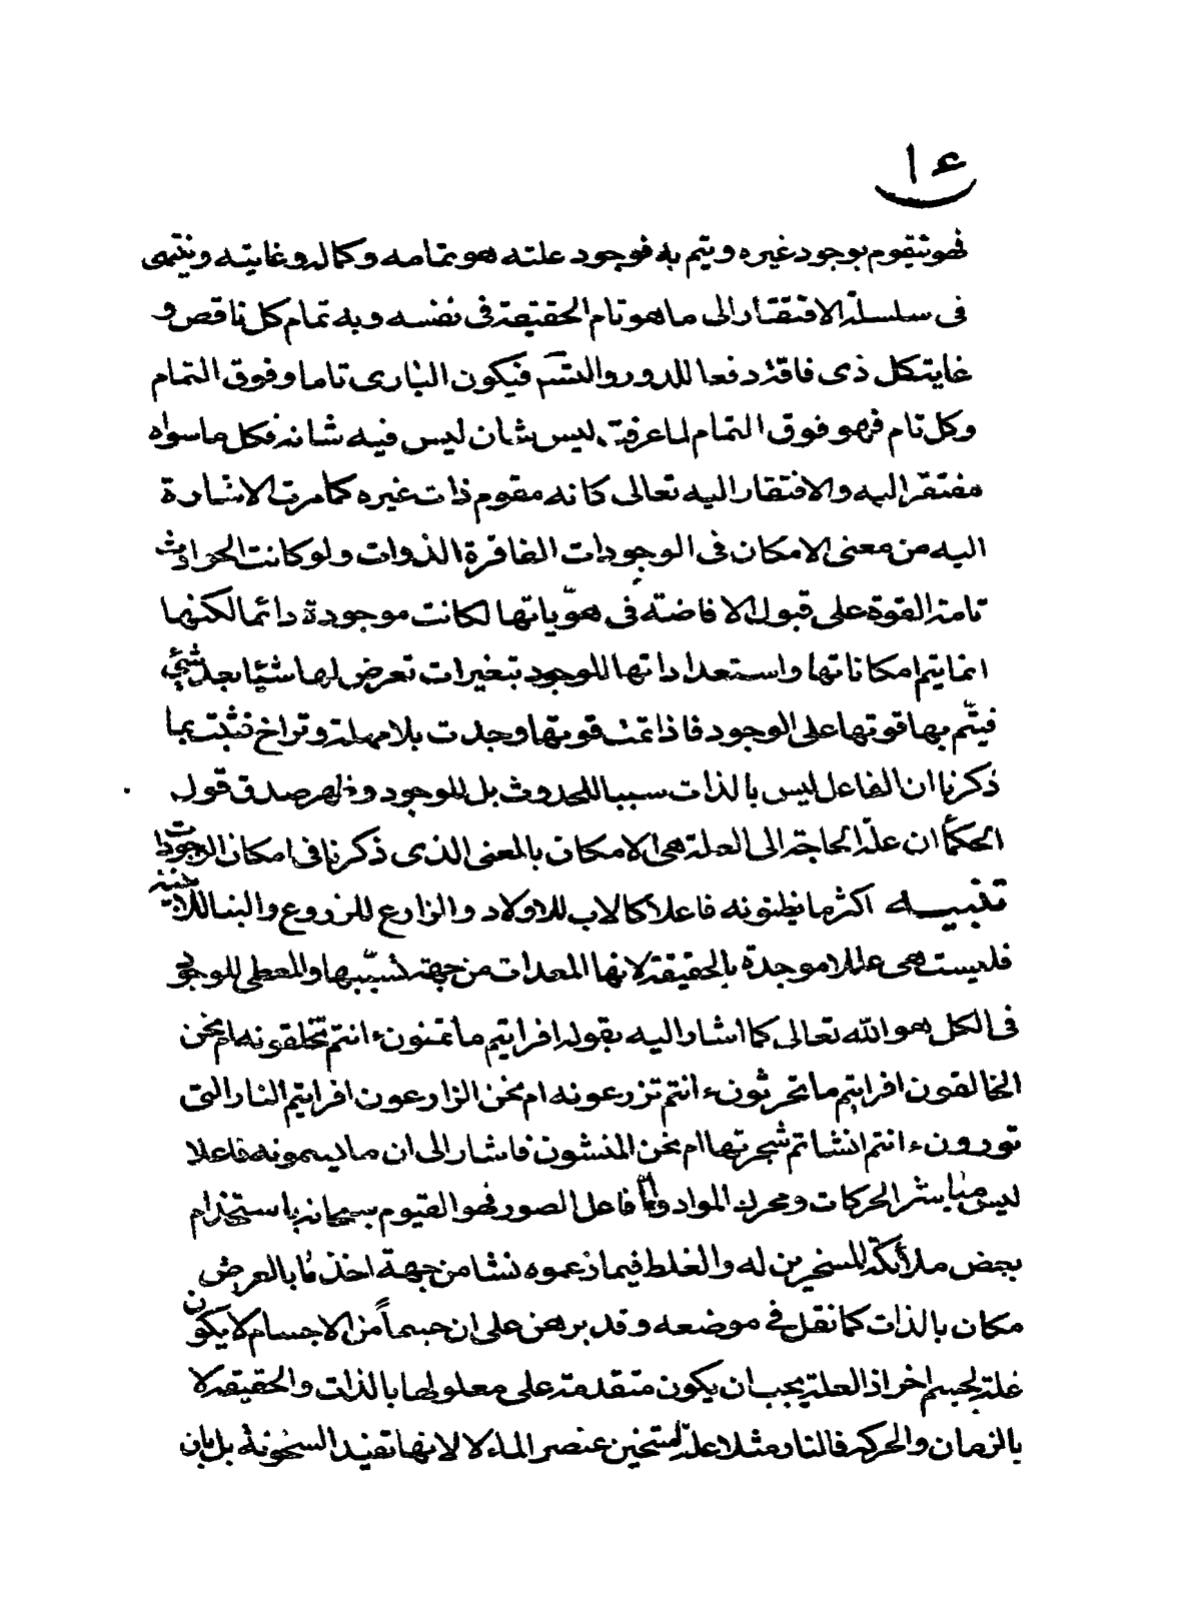 ١٤
فهو يتقوم بوجود غيره ويتم به فوجود علته هو تمامه وكماله وغايته وينتهى
فى سلسلة الافتقار الى ما هو تام الحقيقة فى نفسه وبه تمام كل ناقص و
غاية كل ذى فاقة دفعا للدور والتسـ فيكون البارى تاما وفوق التمام
وكل تام فهو فوق التمام لما عرفت ليس بشان ليس فيه شانه فكل ما سواه
مفتقر اليه والافتقار اليه تعالى كانه مقوم ذات غيره كما مرت الاشارة
اليه من معنى الامكان فى الوجودات الفاقرة الذوات ولو كانت الحوادث
تامة القوة على قبول الافاضة فى هوّياتها لكانت موجودة دائما لكنها
انما يتم امكاناتها واستعداداتها للوجود بتغيرات تعرض لها شيئا بعد شئ
فيتّم بها قوتها على الوجود فاذا تمت قوتها وجدت بلا مهلة وتراخ فثبت بما
ذكرنا ان الفاعل ليس بالذات سببا للحدوث بل للوجود وظهر صدق قول
الحكماء ان علة الحاجة الى العلة هى الامكان بالمعنى الذى ذكرنا فى امكان الوجودات
تنبيه اكثر ما يظنونه فاعلا كالاب للاولاد والزارع للزروع والبنا للابنية
فليست هى عللا موجدة بالحقيقة لانها المعدات من جهة تسبّبها والمعطى للوجود
فى الكل هو الله تعالى كما اشار اليه بقوله افرايتم ما تمنون ءانتم تخلقونه ام نحن
الخالقون افرايتم ما تحرثون ءانتم تزرعونه ام نحن الزارعون افرايتم النار التى
تورون ءانتم انشاتم شجرتها ام نحن المنشون فاشار الى ان ما يسمونه فاعلا
ليس مباشر الحركات ومحرك المواد وامّا فاعل الصور فهو القيوم سبحانه باستخدام
بعض ملائكة المسخرين له والغلط فيما زعموه نشا من جهة اخذ ما بالعرض
مكان بالذات كما نقل فى موضعه وقد برهن على ان جسماً من الاجسام لا يكون
علة لجسم اخر اذ العلة يجب ان يكون متقدمة على معلولها بالذات والحقيقة لا
بالزمان والحركة فالنار مثلا علة لتسخين عنصر الماء لا لانها تفيد السخونة بل بان